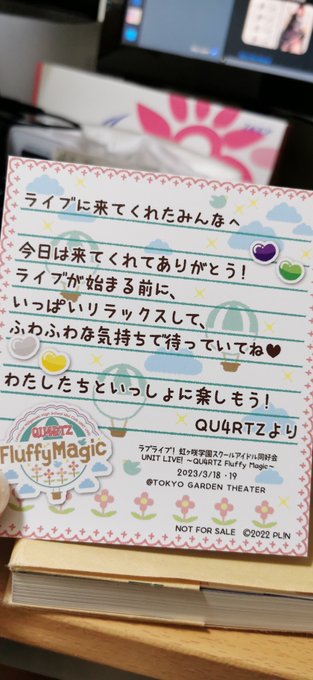 ライブに来てくれたみんなへ
今日は来てくれてありがとう！
ライブが始まる前に、
いっぱいリラックスして、
ふわふわな気持ちで待っていてね♥
わたしたちといっしょに楽しもう！
QU4RTZより
QU4RTZ
FluffyMagic
ラブライブ！虹ヶ咲学園スクールアイドル同好会
UNIT LIVE! ～QU4RTZ Fluffy Magic～
2023/3/18・19
@TOKYO GARDEN THEATER
NOT FOR SALE ©2022 PL!N